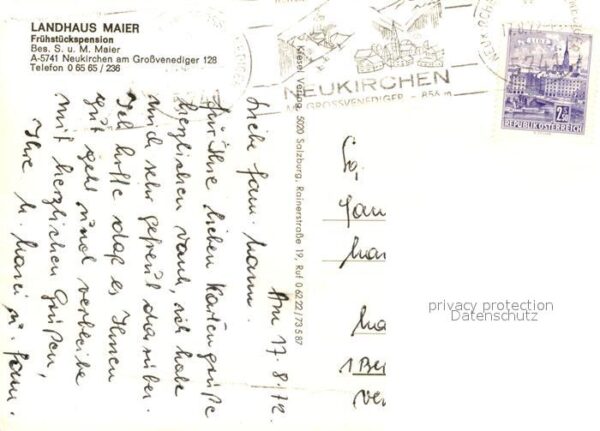 LANDHAUS MAIER
Frühstückspension
Bes. S. u. M. Maier
A-5741 Neukirchen am Großvenediger 128
Telefon 0 65 65 / 236
NEUKIRCHEN
AM GROSSVENEDIGER - 856 m
LINZ
2.50
REPUBLIK ÖSTERREICH
Kiesel Verlag, 5020 Salzburg, Rainerstraße 19, Ruf 0 62 22 / 7 35 87
Am 17.8.72
Liebe Fam.
für Ihre lieben Kartengrüße
herzlichen Dank, ich habe
mich sehr gefreut darüber.
Ich hoffe daß es Ihnen
gut geht und verbleibe
mit herzlichen Grüßen,
Ihre
u. Fam.
Fam
1 Ber
privacy protection
Datenschutz